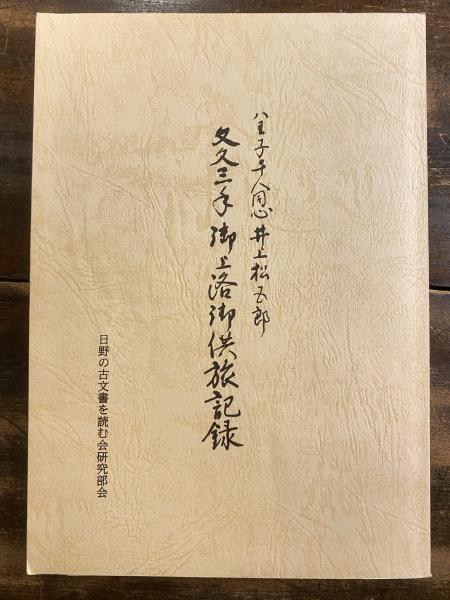 八王子千人同心井上松五郎
文久三年御上洛御供旅記録
日野の古文書を読む会研究部会